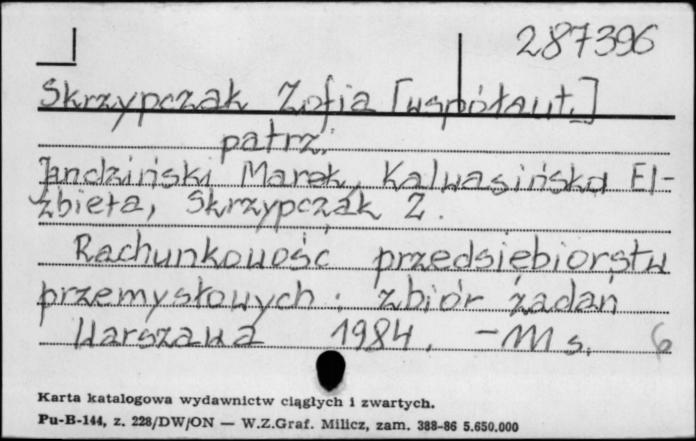 287396
Skrzypczak Zofia [współaut.]
patrz:
Jandziński Marek, Kalwasińska El-
żbieta, Skrzypczak Z.
Rachunkowość przedsiębiorstw
przemysłowych : zbiór zadań
Warszawa 1984. – 111 s.
Karta katalogowa wydawnictw ciągłych i zwartych.
Pu-B-144, z. 228/DW/ON — W.Z.Graf. Milicz, zam. 388-86 5.650.000